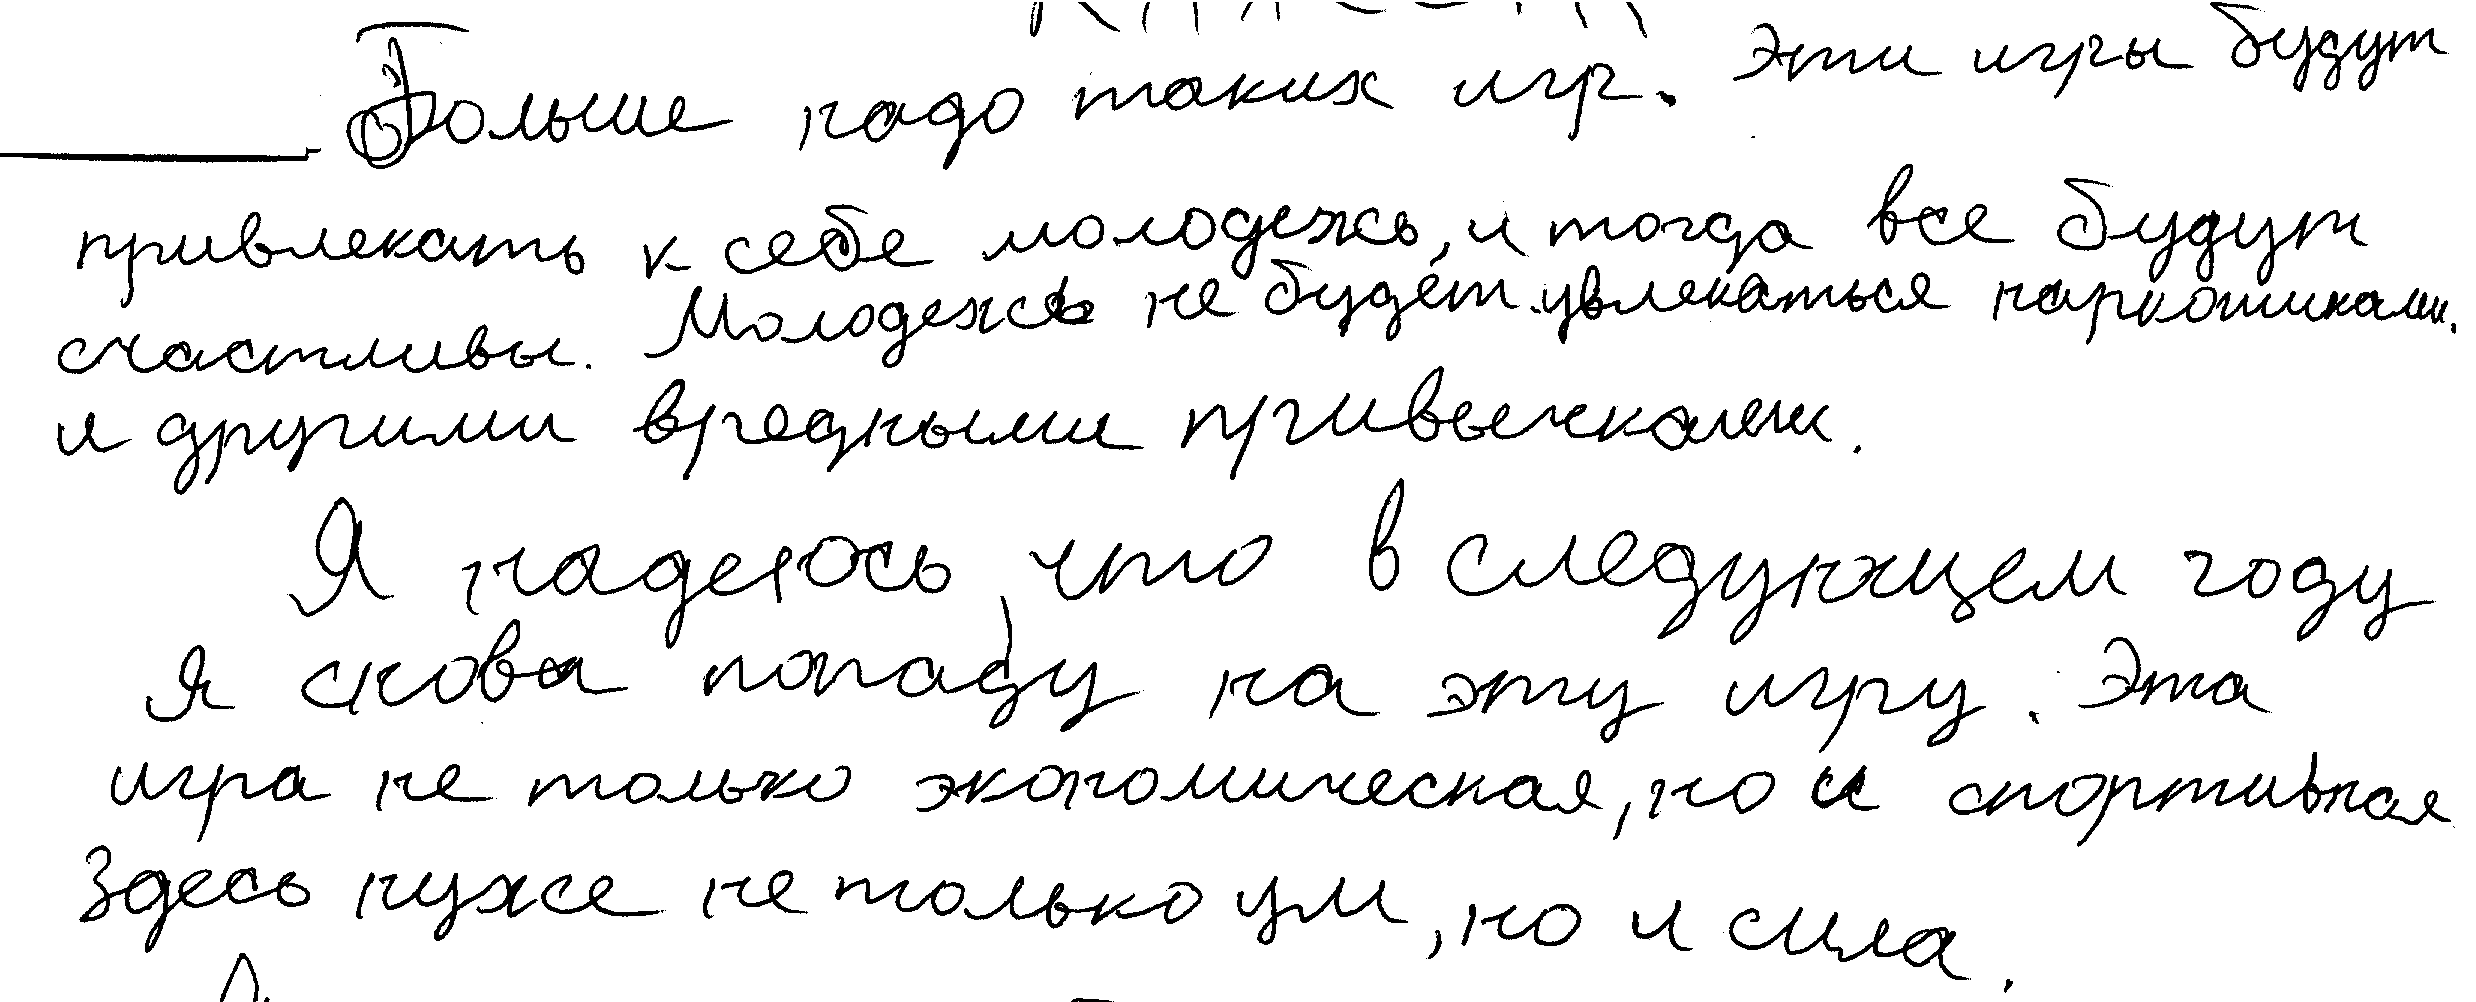 Больше надо таких игр. Эти игры будут
привлекать к себе молодежь, и тогда все будут
счастливы. Молодежь не будет увлекаться наркотиками.
и другими вредными привычками.
Я надеюсь, что в следующем году
я снова попаду на эту игру. Эта
игра не только экономическая, но и спортивная
Здесь нуже не только ум, но и сила.